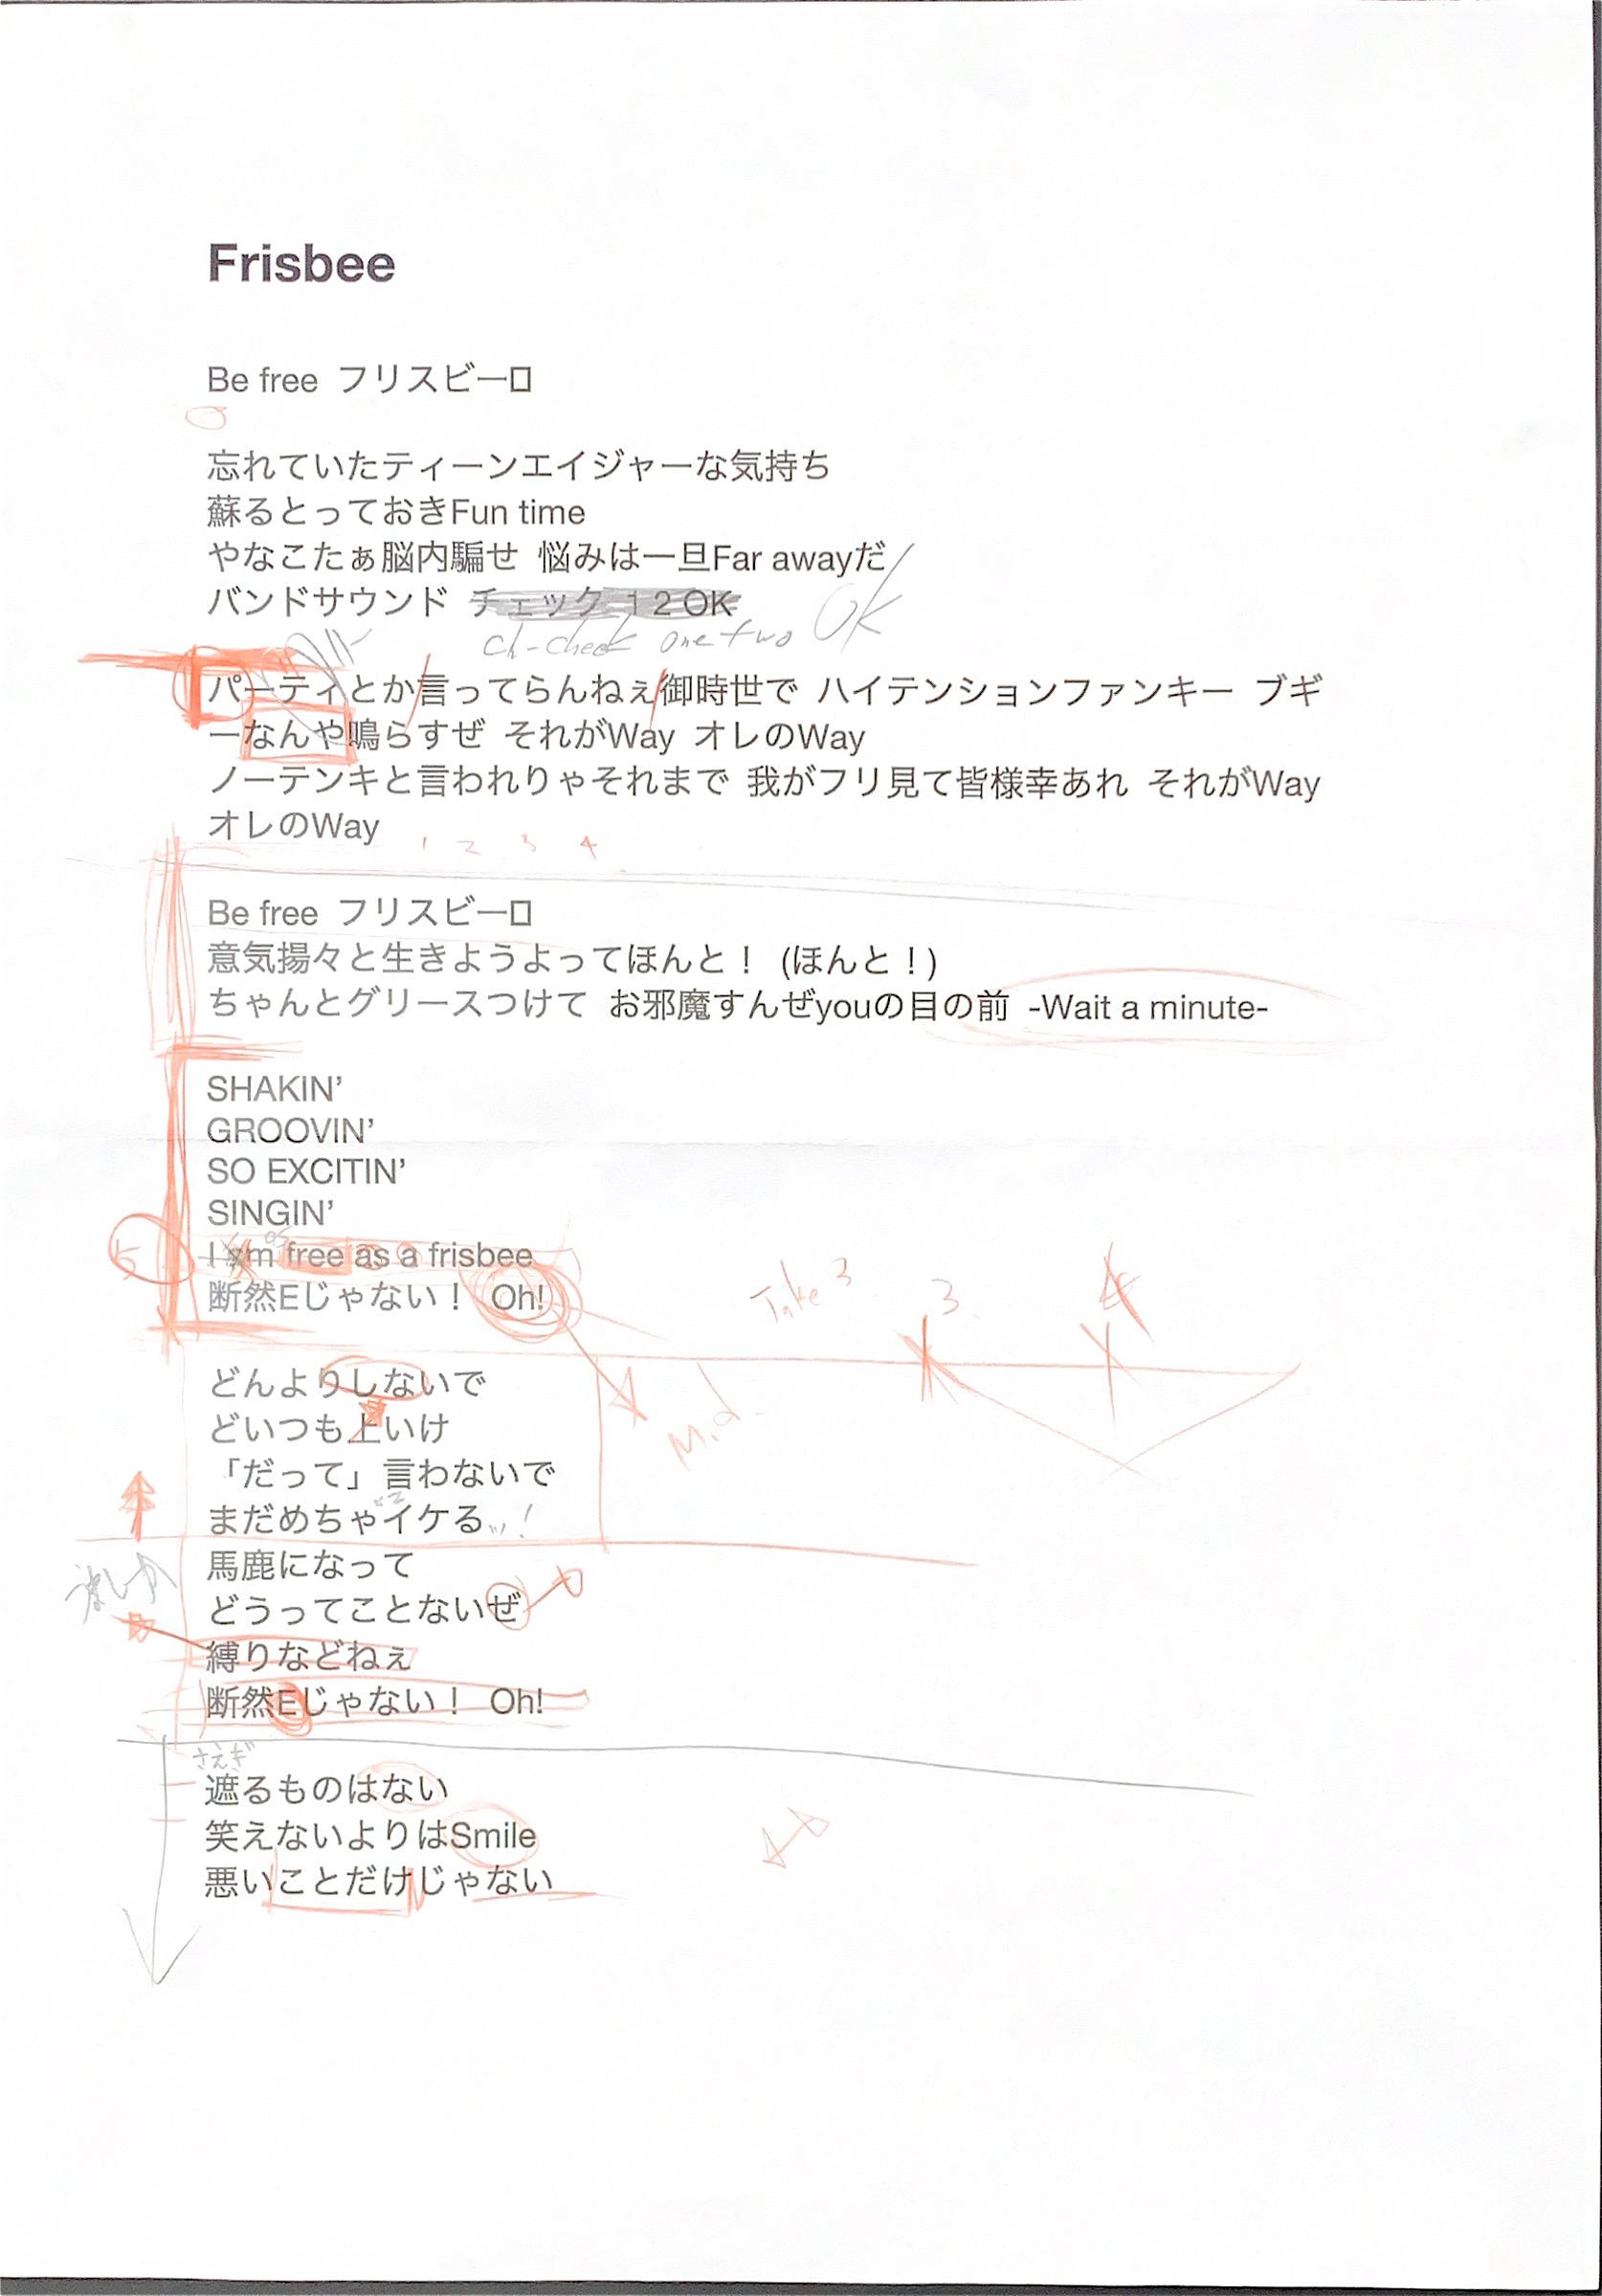 Frisbee
Be free フリスビー□
忘れていたティーンエイジャーな気持ち
蘇るとっておきFun time
やなこたぁ脳内騙せ 悩みは一旦Far awayだ
バンドサウンド チェック 1 2 OK
ch-check one two OK
パーティとか言ってらんねぇ御時世で ハイテンションファンキー ブギ
ーなんや鳴らすぜ それがWay オレのWay
ノーテンキと言われりゃそれまで 我がフリ見て皆様幸あれ それがWay
オレのWay
1 2 3 4
Be free フリスビー□
意気揚々と生きようよってほんと！ (ほんと！)
ちゃんとグリースつけて お邪魔すんぜyouの目の前 -Wait a minute-
SHAKIN’
GROOVIN’
SO EXCITIN’
SINGIN’
as
I am free as a frisbee
断然Eじゃない！ Oh!
Take 3 3. 4
どんよりしないで
どいつも上いけ
Mid.
「だって」言わないで
まだめちゃイケるッ!
馬鹿になって
どうってことないぜ
縛りなどねぇ
断然Eじゃない！ Oh!
さえぎ
遮るものはない
笑えないよりはSmile
悪いことだけじゃない